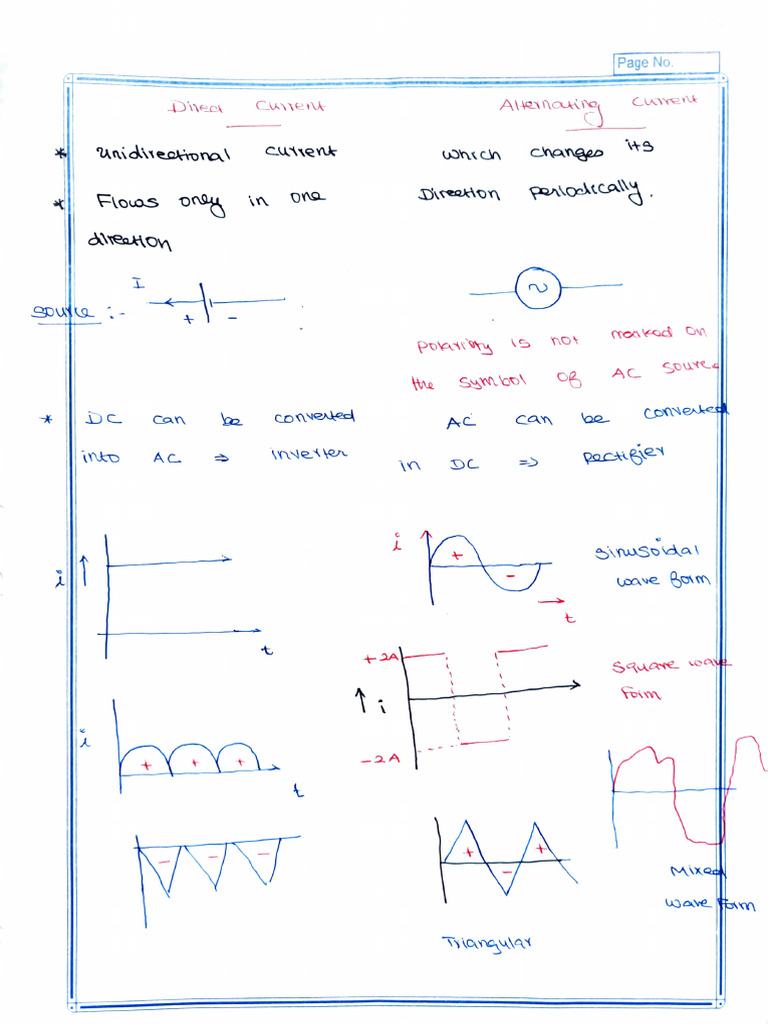 Page No.
Direct Current
Alternating Current
* Unidirectional current
which changes its
* Flows only in one
Direction periodically.
direction
Source :-
I
+ -
~
Polarity is not marked on
the symbol of AC source
* DC can be converted
AC can be converted
into AC ⇒ inverter
in DC ⇒ Rectifier
i ↑
t
i
+
-
t
Sinusoidal
wave form
+2A
↑ i
-2A
Square wave
form
i
+ + +
t
- - -
+ - +
Triangular
Mixed
wave form